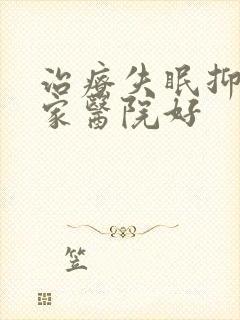 治疗失眠抑
家医院好
笠